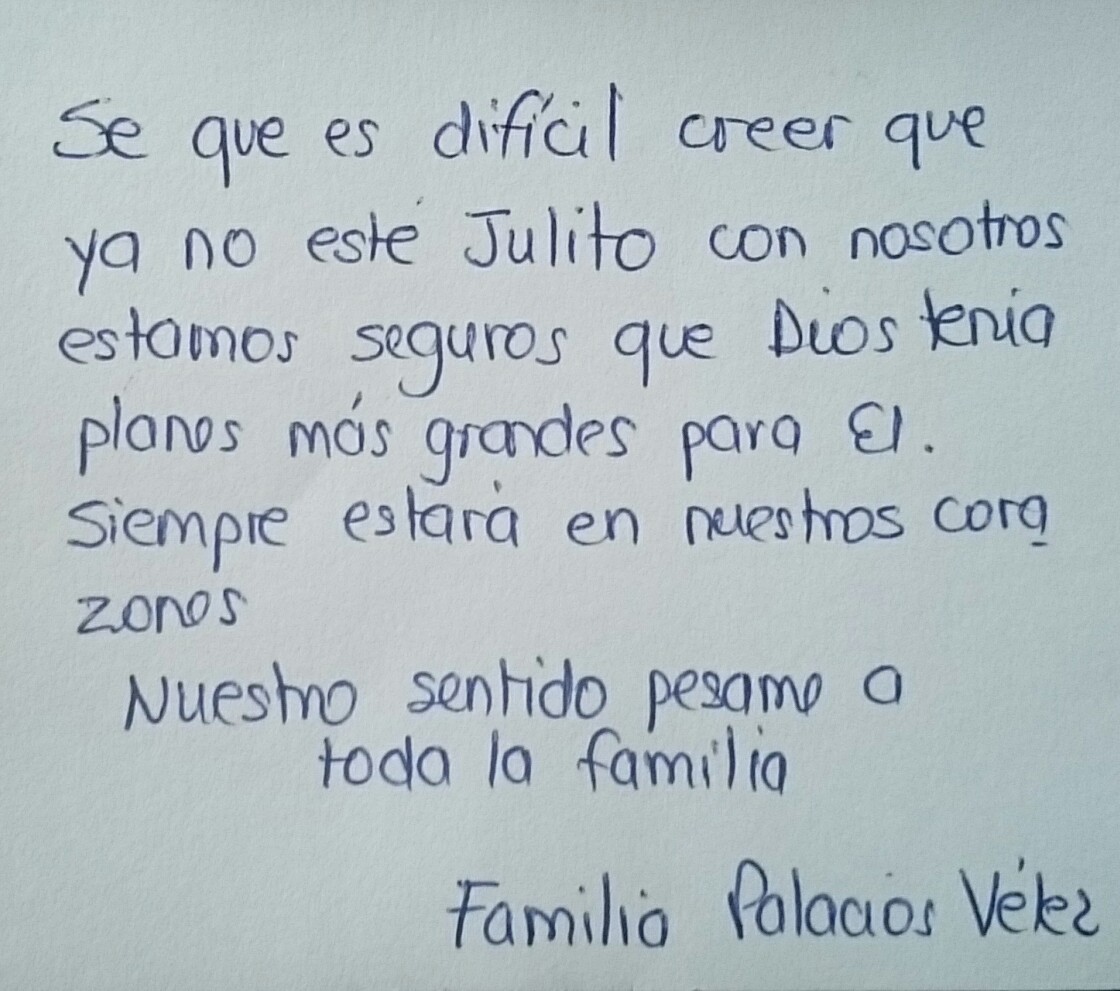 Se que es difícil creer que
ya no esté Julito con nosotros
estamos seguros que Dios tenia
planes más grandes para El.
Siempre estará en nuestros cora
zones
Nuestro sentido pesame a
toda la familia
Familia Palacios Vélez